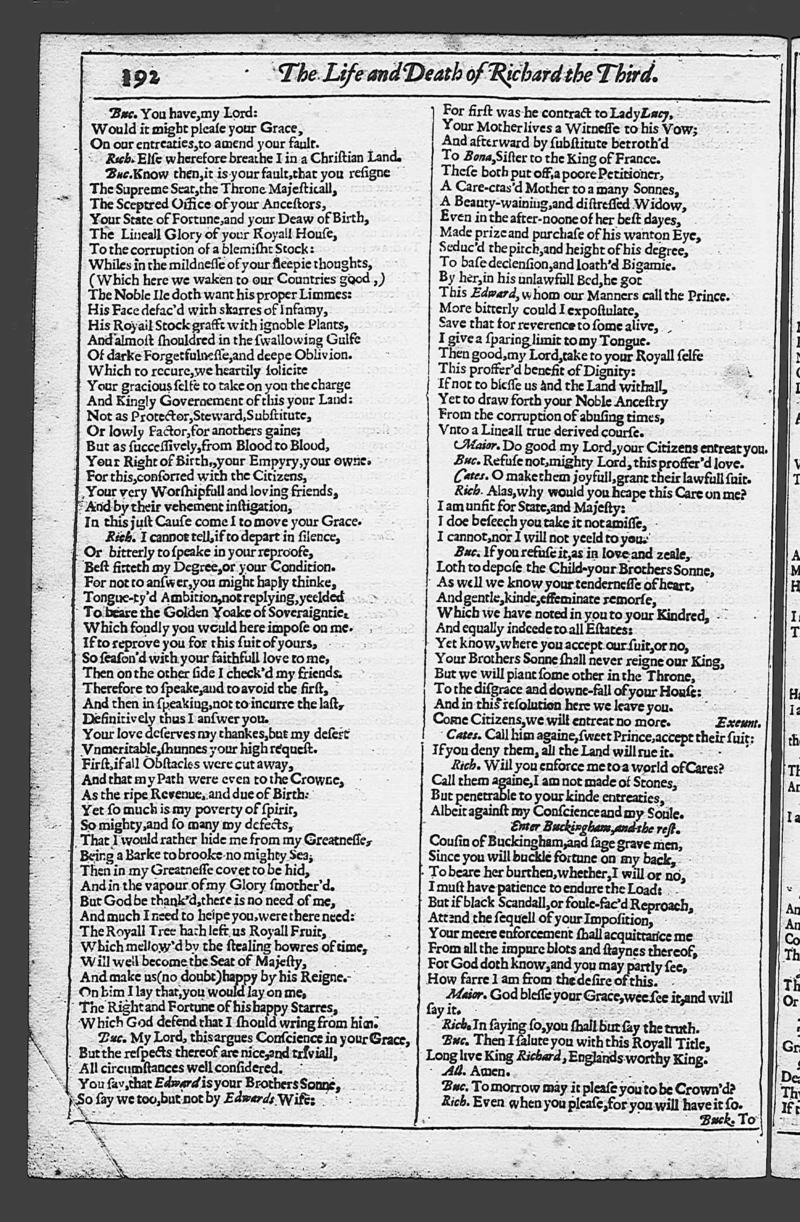 192
The Life and Death of Richard the Third.
Buc. You have, my Lord:
Would it might please your Grace,
On our entreaties, to amend your fault.
Rich. Else wherefore breathe I in a Christian Land.
Buc. Know then, it is your fault, that you resigne
The Supreme Seat, the Throne Majesticall,
The Sceptred Office of your Ancestors,
Your State of Fortune, and your Deaw of Birth,
The Lineall Glory of your Royall House,
To the corruption of a blemisht Stock:
Whiles in the mildnesse of your sleepie thoughts,
(Which here we waken to our Countries good,)
The Noble Ile doth want his proper Limmes:
His Face defac'd with skarres of Infamy,
His Royall Stock grafft with ignoble Plants,
And almost shouldred in the swallowing Gulfe
Of darke Forgetfulnesse, and deepe Oblivion.
Which to recure, we heartily solicite
Your gracious selfe to take on you the charge
And Kingly Governement of this your Land:
Not as Protector, Steward, Substitute,
Or lowly Factor, for anothers gaine;
But as successively, from Blood to Blood,
Your Right of Birth, your Empyry, your owne.
For this, consorred with the Citizens,
Your very Worshipfull and loving friends,
And by their vehement instigation,
In this just Cause come I to move your Grace.
Rich. I cannot tell, if to depart in silence,
Or bitterly to speake in your reproofe,
Best fitteth my Degree, or your Condition.
For not to answer, you might haply thinke,
Tongue-ty'd Ambition, not replying, yeelded
To beare the Golden Yoake of Soveraigntie,
Which fondly you would here impose on me.
If to reprove you for this suit of yours,
So season'd with your faithfull love to me,
Then on the other side I check'd my friends.
Therefore to speake, and to avoid the first,
And then in speaking, not to incurre the last,
Definitively thus I answer you.
Your love deserves my thankes, but my desert
Vnmeritable, shunnes your high request.
First, if all Obstacles were cut away,
And that my Path were even to the Crowne,
As the ripe Revenue, and due of Birth:
Yet so much is my poverty of spirit,
So mighty, and so many my defects,
That I would rather hide me from my Greatnesse,
Being a Barke to brooke no mighty Sea;
Then in my Greatnesse covet to be hid,
And in the vapour of my Glory smother'd.
But God be thank'd, there is no need of me,
And much I need to helpe you, were there need:
The Royall Tree hath left us Royall Fruit,
Which mellow'd by the stealing howres of time,
Will well become the Seat of Majesty,
And make us (no doubt) happy by his Reigne.
On him I lay that, you would lay on me,
The Right and Fortune of his happy Starres,
Which God defend that I should wring from him.
Buc. My Lord, this argues Conscience in your Grace,
But the respects thereof are nice, and triviall,
All circumstances well considered.
You say, that Edward is your Brothers Sonne,
So say we too, but not by Edwards Wife:
For first was he contract to Lady Lucy,
Your Mother lives a Witnesse to his Vow;
And afterward by substitute betroth'd
To Bona, Sister to the King of France.
These both put off, a poore Petitioner,
A Care-cras'd Mother to a many Sonnes,
A Beauty-waining, and distressed Widow,
Even in the after-noone of her best dayes,
Made prize and purchase of his wanton Eye,
Seduc'd the pitch, and height of his degree,
To base declension, and loath'd Bigamie.
By her, in his unlawfull Bed, he got
This Edward, whom our Manners call the Prince.
More bitterly could I expostulate,
Save that for reverence to some alive,
I give a sparing limit to my Tongue.
Then good, my Lord, take to your Royall selfe
This proffer'd benefit of Dignity:
If not to blesse us and the Land withall,
Yet to draw forth your Noble Ancestry
From the corruption of abusing times,
Vnto a Lineall true derived course.
Maior. Do good my Lord, your Citizens entreat you.
Buc. Refuse not, mighty Lord, this proffer'd love.
Cates. O make them joyfull, grant their lawfull suit.
Rich. Alas, why would you heape this Care on me?
I am unfit for State, and Majesty:
I doe beseech you take it not amisse,
I cannot, nor I will not yeeld to you.
Buc. If you refuse it, as in love and zeale,
Loth to depose the Child-your Brothers Sonne,
As well we know your tendernesse of heart,
And gentle, kinde, effeminate remorse,
Which we have noted in you to your Kindred,
And equally indeede to all Estates:
Yet know, where you accept our suit, or no,
Your Brothers Sonne shall never reigne our King,
But we will plant some other in the Throne,
To the disgrace and downe-fall of your House:
And in this resolution here we leave you.
Come Citizens, we will entreat no more. Exeunt.
Cates. Call him againe, sweet Prince, accept their suit:
If you deny them, all the Land will rue it.
Rich. Will you enforce me to a world of Cares?
Call them againe, I am not made of Stones,
But penetrable to your kinde entreaties,
Albeit against my Conscience and my Soule.
Enter Buckingham, and the rest.
Cousin of Buckingham, and sage grave men,
Since you will buckle fortune on my back,
To beare her burthen, whether, I will or no,
I must have patience to endure the Load:
But if black Scandall, or foule-fac'd Reproach,
Attend the sequell of your Imposition,
Your meere enforcement shall acquittance me
From all the impure blots and staynes thereof,
For God doth know, and you may partly see,
How farre I am from the desire of this.
Maior. God blesse your Grace, wee see it, and will
say it.
Rich. In saying so, you shall but say the truth.
Buc. Then I salute you with this Royall Title,
Long live King Richard, Englands worthy King.
All. Amen.
Buc. To morrow may it please you to be Crown'd?
Rich. Even when you please, for you will have it so.
Buck. To